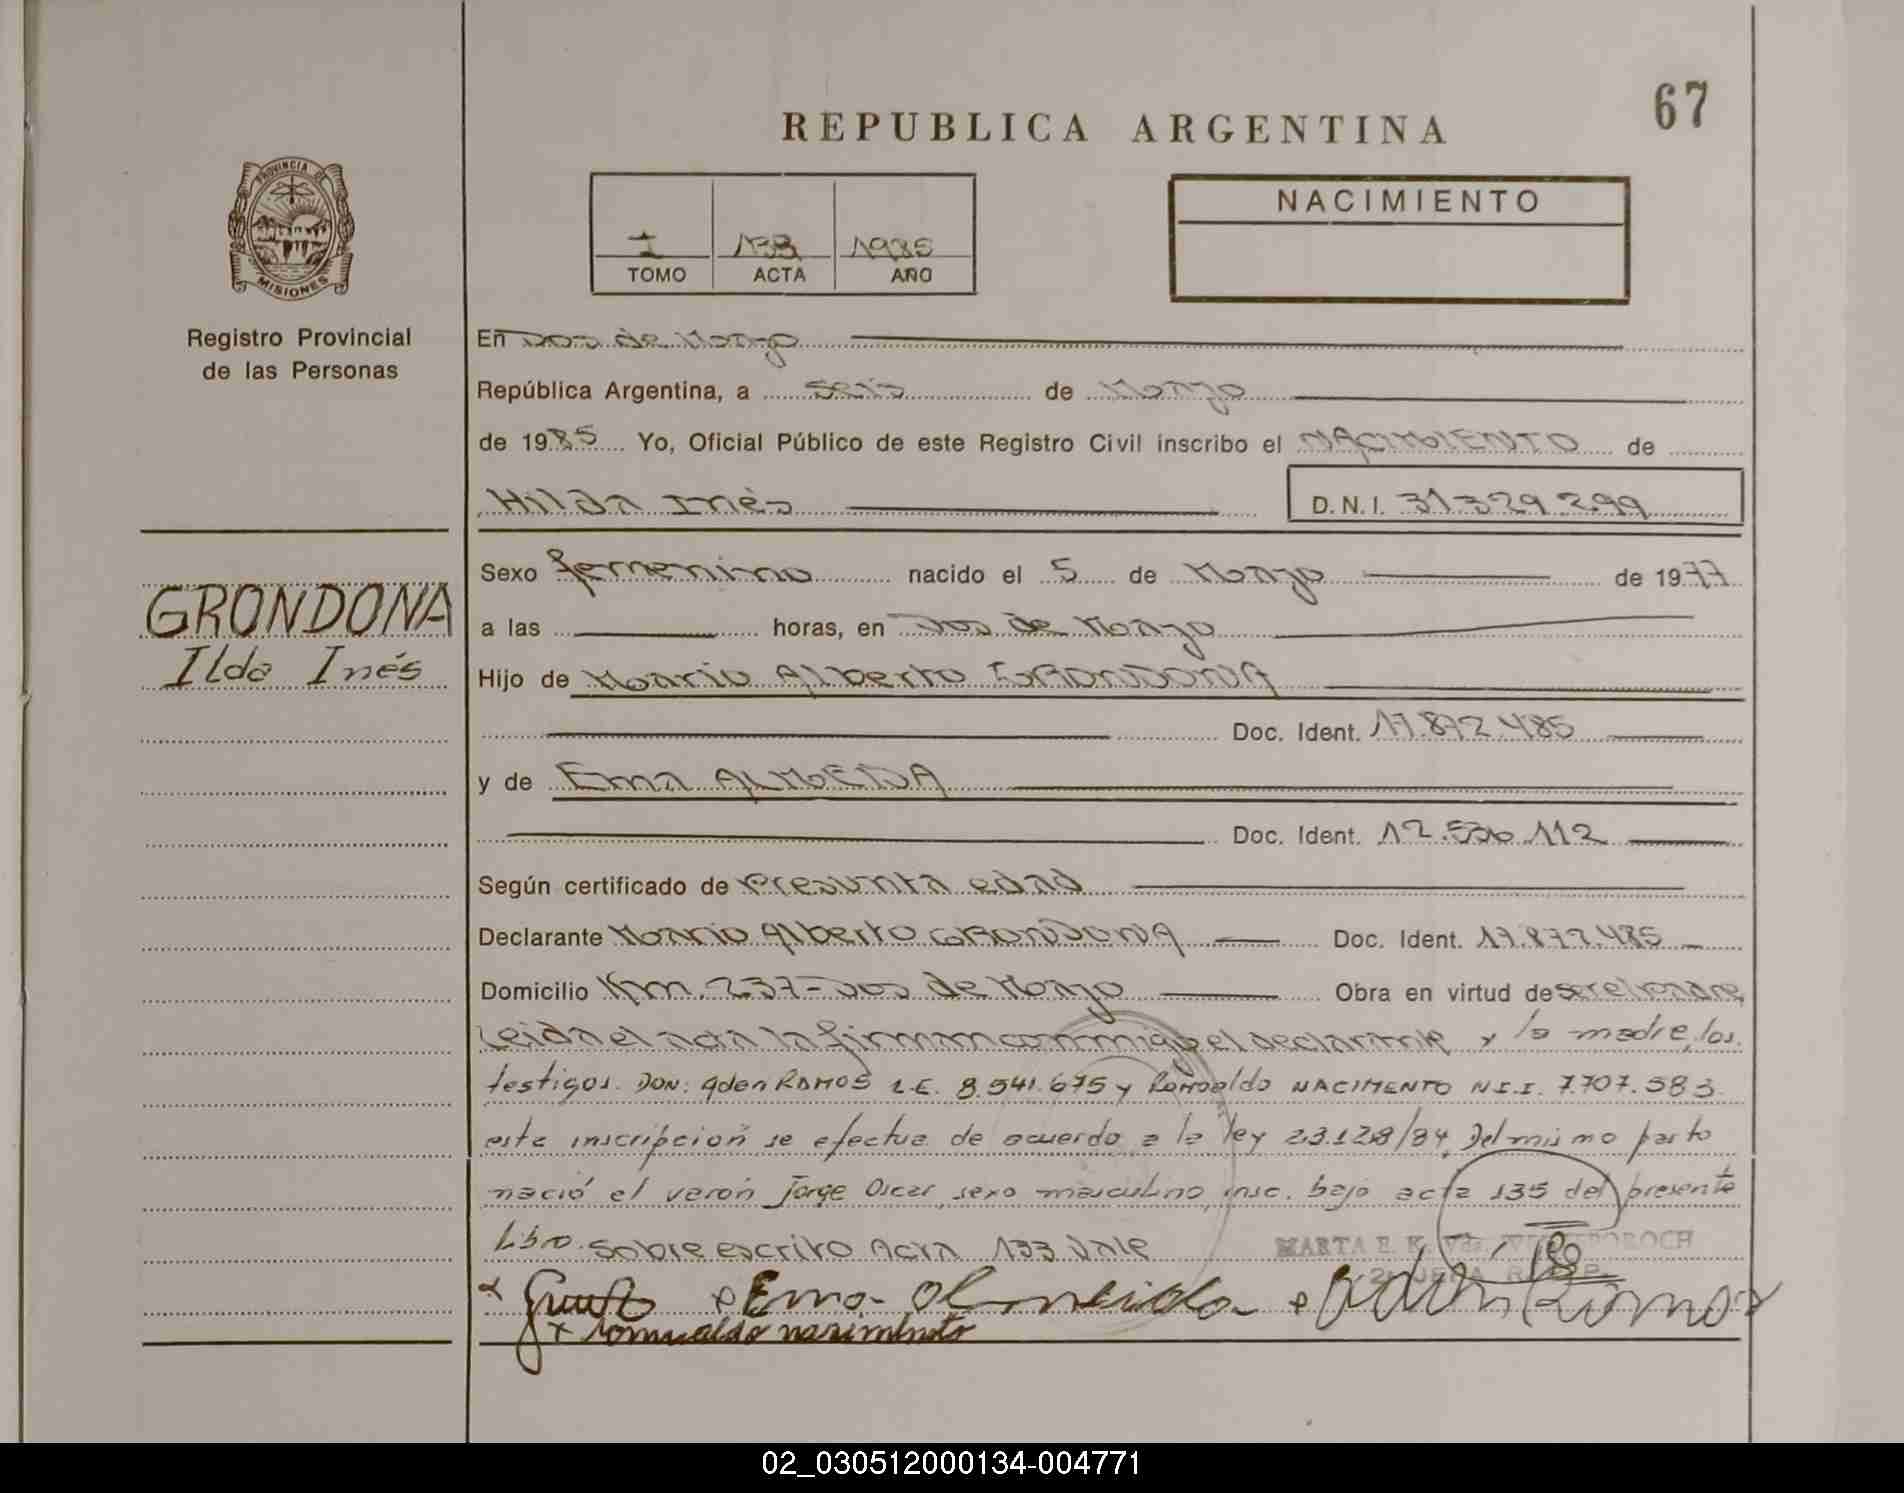 67
REPUBLICA ARGENTINA
PROVINCIA DE
MISIONES
Registro Provincial
de las Personas
I 133 1985
TOMO ACTA AÑO
NACIMIENTO
En Dos de Mayo
República Argentina, a seis de Marzo
de 1985 Yo, Oficial Público de este Registro Civil inscribo el NACIMIENTO de
Hilda Inés D.N.I. 31.329.299
GRONDONA
Ilda Inés
Sexo femenino nacido el 5 de Marzo de 1977
a las horas, en Dos de Mayo
Hijo de Mario Alberto GRONDONA
Doc. Ident. 17.872.485
y de Ema ALMEIDA
Doc. Ident. 12.536.112
Según certificado de Presunta edad
Declarante Mario Alberto GRONDONA Doc. Ident. 17.872.485
Domicilio Km. 237-Dos de Mayo Obra en virtud de ser el padre
Leida el acta la firman conmigo el declarante y la madre, los
testigos. DON: Aden RAMOS L.E. 8.541.675 y Romoaldo NACIMENTO N I.I. 7.707.583
esta inscripción se efectua de acuerdo a la ley 23.128/84. Del mismo parto
nació el varón Jorge Oscar, sexo masculino, insc. bajo acta 135 del presente
Libro. Sobre escrito Acta 133 Vale
MARTA E. K. Vda.
Ema Olmeida Aden Ramos
x romualdo nacimento
02_030512000134-004771